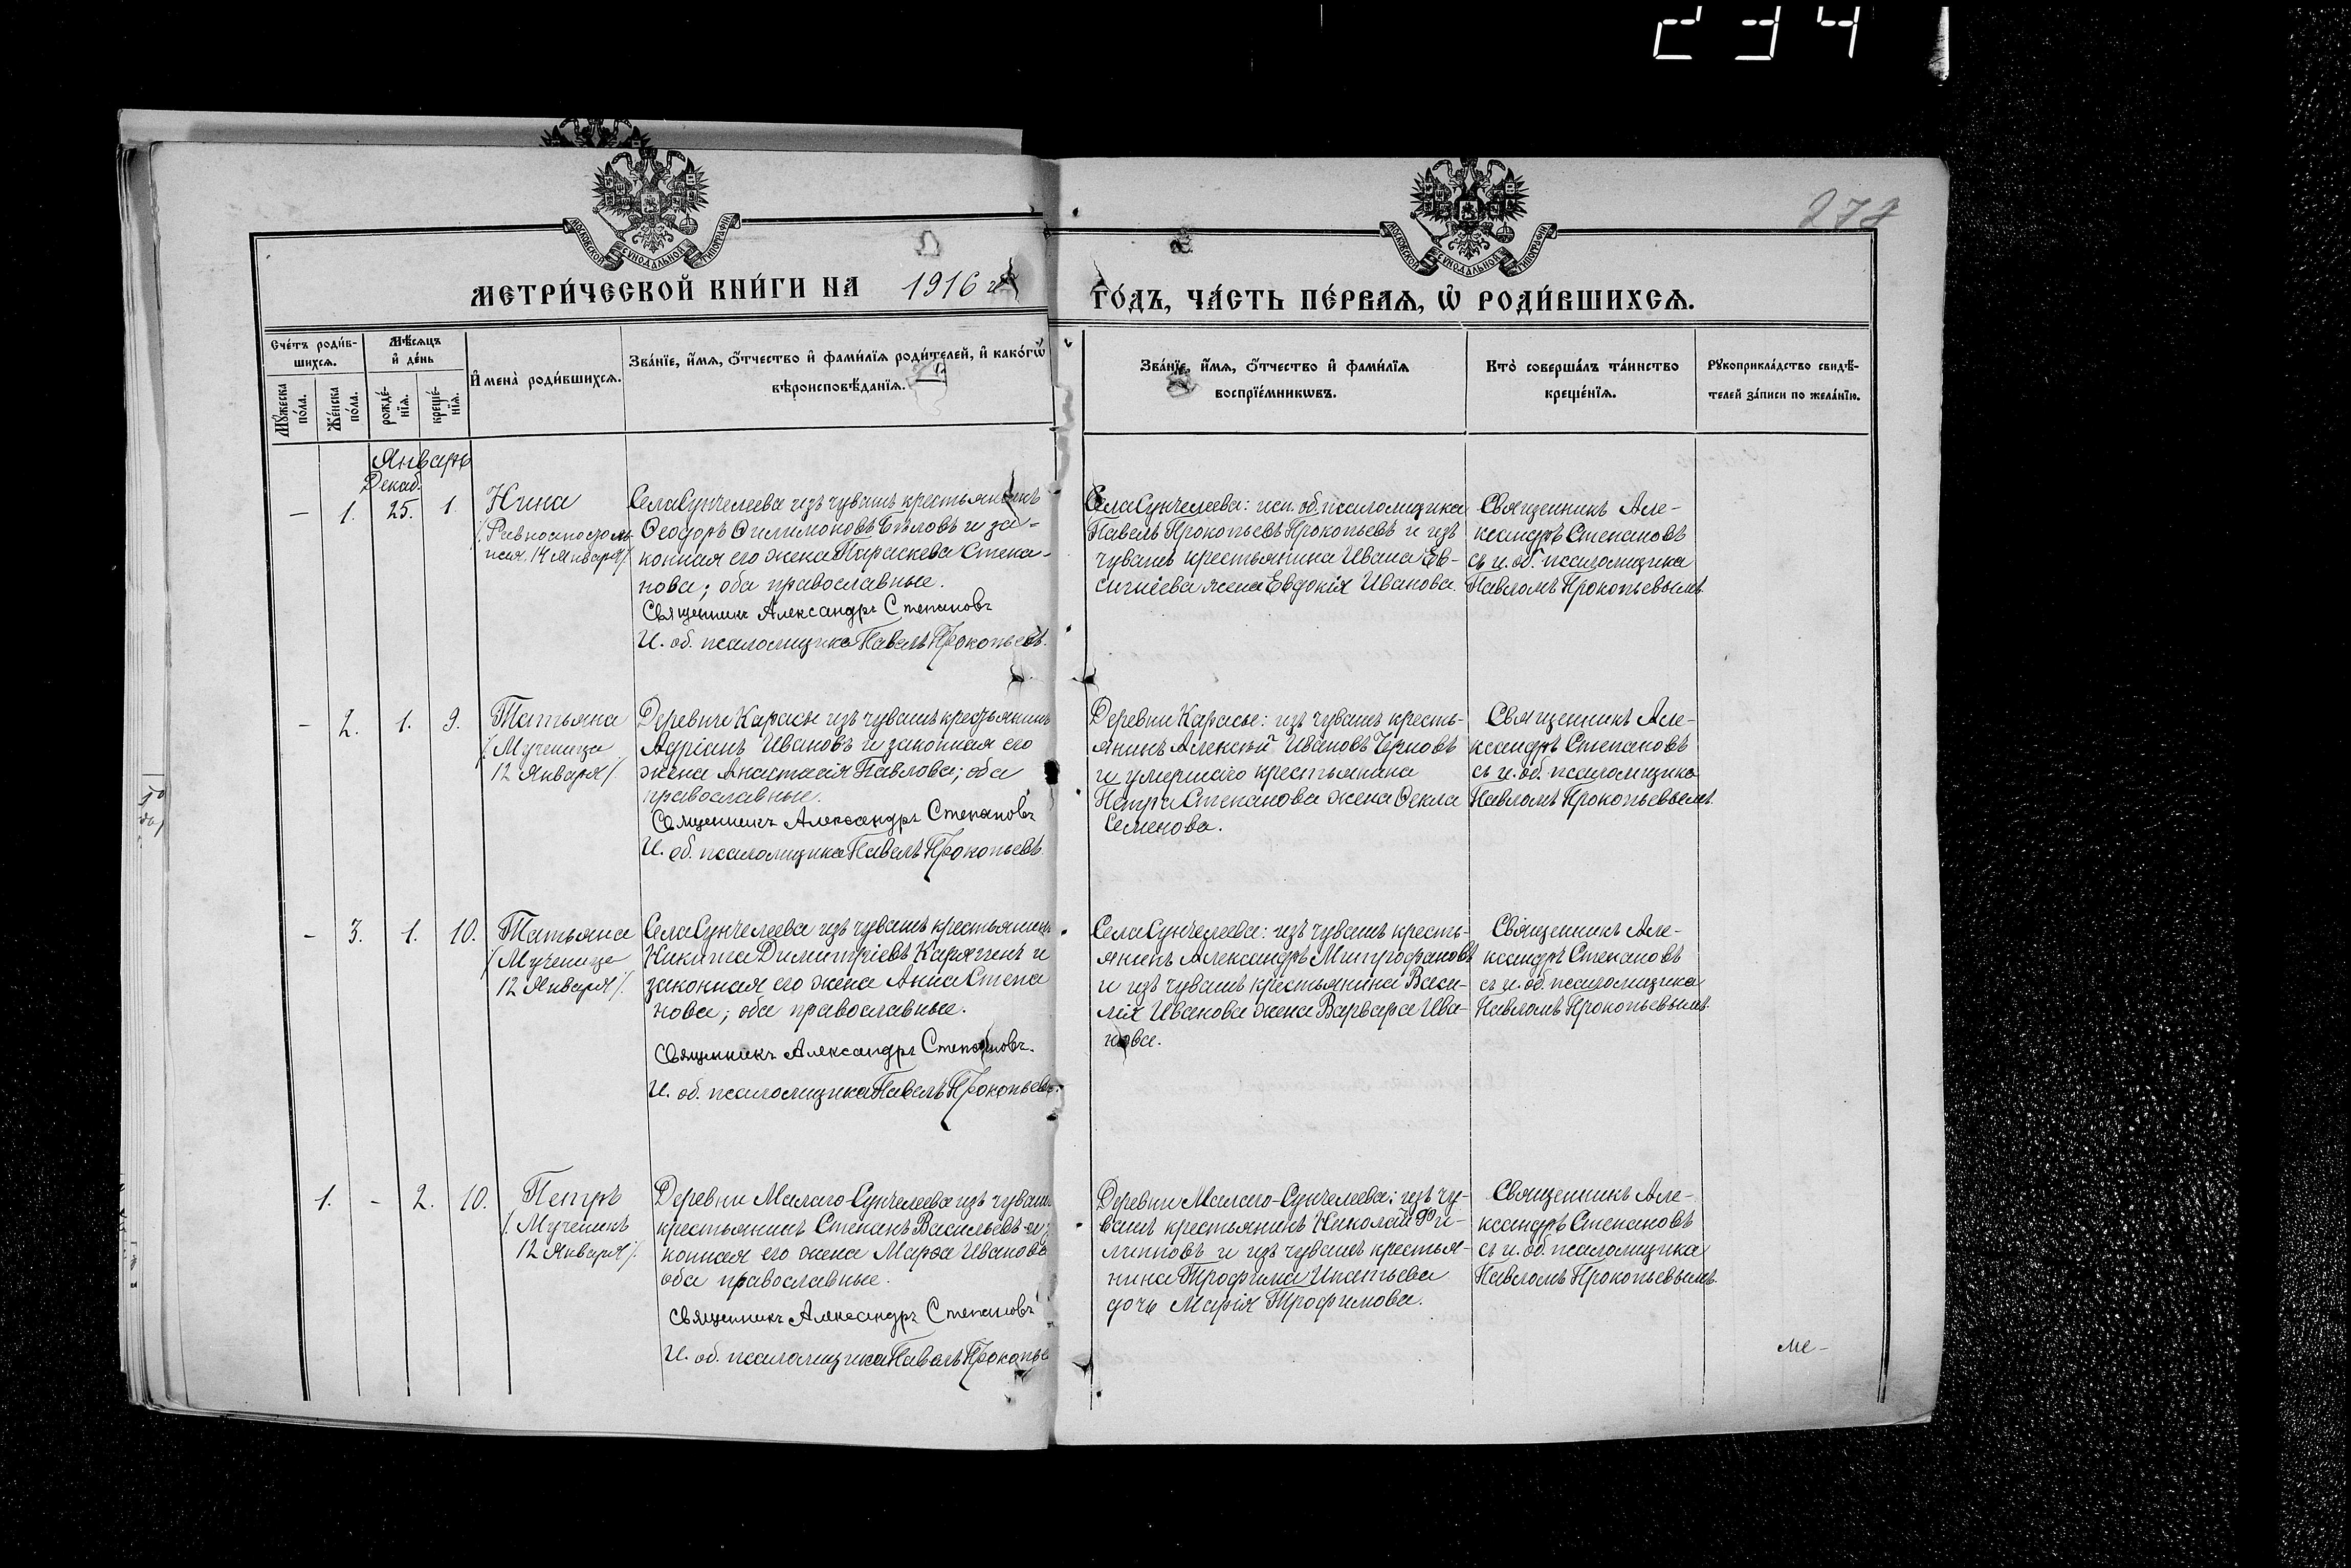 234
278
МОСКОВСКОЙ СѴНОДАЛЬНОЙ ТИПОГРАФІИ
МОСКОВСКОЙ СѴНОДАЛЬНОЙ ТИПОГРАФІИ
МЕТРИ́ЧЕСКОЙ КНИ́ГИ НА 1916 г
ГО́ДЪ, ЧА́СТЬ ПЕ́РВАѦ, Ѡ҆ РОДИ́ВШИХСѦ.
Сче́тъ роди́в-
шихсѧ.
Мѣ́сѧцъ
и҆ де́нь
Мꙋ́жеска
по́ла.
Же́нска
по́ла.
рожде́-
нїѧ.
креще́-
нїѧ.
И҆мена̀ роди́вшихсѧ.
Зва́нїе, и҆́мѧ, ѻ҆́тчество и҆ фами́лїѧ роди́телей, и҆ како́гѡ
вѣроисповѣ́данїѧ.
Зва́нїе, и҆́мѧ, ѻ҆́тчество и҆ фами́лїѧ
воспрїе́мникѡвъ.
Кто̀ соверша́лъ та́инство
креще́нїѧ.
Рꙋкоприкла́дство свидѣ́-
телей за́писи по жела́нїю.
Январь
Декаб.
— 1. 25. 1.
Нина
/.Равноапостоль-
ная, 14 Января/.
Села Сунчелеева изъ чувашъ крестьянинъ
Ѳеодоръ Филимоновъ Бѣловъ и за-
конная его жена Параскева Степа-
нова; оба православные.
Священникъ Александръ Степановъ
И. об. псаломщика Павелъ Прокопьевъ.
Села Сунчелеева: исп. об. псаломщика
Павелъ Прокопьевъ Прокопьевъ и изъ
чувашъ крестьянина Ивана Ев-
сигнеева жена Евдокія Иванова.
Священникъ Але-
ксандръ Степановъ
съ и. об. псаломщика
Павломъ Прокопьевымъ.
— 2. 1. 9.
Татьяна
/.Мученица
12 Января/.
Деревни Карасы изъ чувашъ крестьянинъ
Адріанъ Ивановъ и законная его
жена Анастасія Павлова; оба
православные.
Священникъ Александръ Степановъ
И. об. псаломщика Павелъ Прокопьевъ.
Деревни Карасы: изъ чувашъ кресть-
янинъ Алексѣй Ивановъ Черновъ
и умершаго крестьянина
Петра Степанова жена Ѳекла
Семенова.
Священникъ Але-
ксандръ Степановъ
съ и. об. псаломщика
Павломъ Прокопьевымъ.
— 3. 1. 10.
Татьяна
/.Мученица
12 Января/.
Села Сунчелеева изъ чувашъ крестьянинъ
Никита Димитріевъ Карягинъ и
законная его жена Анна Степа
нова; оба православные.
Священникъ Александръ Степановъ.
И. об. псаломщика Павелъ Прокопьевъ.
Села Сунчелеева: изъ чувашъ кресть-
янинъ Александръ Митрофановъ
и изъ чувашъ крестьянина Васи-
лія Иванова жена Варвара Ива-
нова.
Священникъ Але-
ксандръ Степановъ
съ и. об. псаломщика
Павломъ Прокопьевымъ.
1. - 2. 10.
Петръ
/.Мученикъ
12 Января/.
Деревни Малаго-Сунчелеева изъ чувашъ
крестьянинъ Степанъ Васильевъ и за
конная его жена Марѳа Иванова
оба православные.
Священникъ Александръ Степановъ
И. об. псаломщика Павелъ Прокопье
Деревни Малаго-Сунчелеева: изъ чу-
вашъ крестьянинъ Николай Фи-
липповъ и изъ чувашъ крестья-
нина Трофима Игнатьева
дочь Марія Трофимова.
Священникъ Але-
ксандръ Степановъ
съ и. об. псаломщика
Павломъ Прокопьевымъ.
ме-